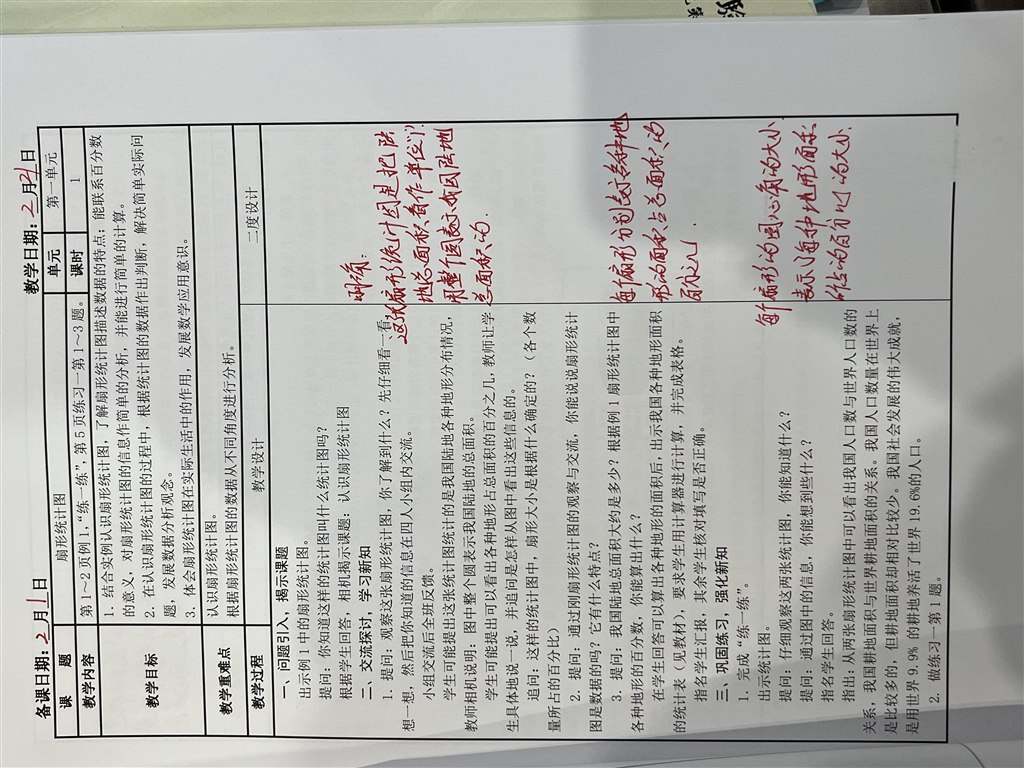 备课日期：2月1日 教学日期：2月21日
课 题 扇形统计图 单元 第一单元
教学内容 第1～2页例1，“练一练”，第5页练习一第1～3题。 课时 1
教学目标
1. 结合实例认识扇形统计图，了解扇形统计图描述数据的特点；能联系百分数
的意义，对扇形统计图的信息作简单的分析，并能进行简单的计算。
2. 在认识扇形统计图的过程中，根据统计图的数据作出判断，解决简单实际问
题，发展数据分析观念。
3. 体会扇形统计图在实际生活中的作用，发展数学应用意识。
教学重难点
认识扇形统计图。
根据扇形统计图的数据从不同角度进行分析。
教学过程 教学设计 二度设计
一、问题引入，揭示课题
出示例1中的扇形统计图。
提问：你知道这样的统计图叫什么统计图吗？
根据学生回答，相机揭示课题：认识扇形统计图
二、交流探讨，学习新知
1. 提问：观察这张扇形统计图，你了解到什么？先仔细看一看，
想一想，然后把你知道的信息在四人小组内交流。
小组交流后全班反馈。
学生可能提出这张统计图统计的是我国陆地各种地形分布情况，
教师相机说明：图中整个圆表示我国陆地的总面积。
学生可能提出可以看出各种地形占总面积的百分之几，教师让学
生具体地说一说，并追问是怎样从图中看出这些信息的。
追问：这样的统计图中，扇形大小是根据什么确定的？（各个数
量所占的百分比）
2. 提问：通过刚扇形统计图的观察与交流，你能说说扇形统计
图是数据的吗？它有什么特点？
3. 提问：我国陆地总面积大约是多少？根据例1扇形统计图中
各种地形的百分数，你能算出什么？
在学生回答可以算出各种地形的面积后，出示我国各种地形面积
的统计表（见教材），要求学生用计算器进行计算，并完成表格。
指名学生汇报，其余学生核对填写是否正确。
三、巩固练习，强化新知
1. 完成“练一练”
出示统计图。
提问：仔细观察这两张统计图，你能知道什么？
提问：通过图中的信息，你能想到些什么？
指名学生回答。
指出：从两张扇形统计图中可以看出我国人口数与世界人口数的
关系，我国耕地面积与世界耕地面积的关系。我国人口数量在世界上
是比较多的，但耕地面积却相对比较少。我国社会发展的伟大成就，
是用世界9.9%的耕地养活了世界19.6%的人口。
2. 做练习一第1题。
明确：
这张扇形统计图是把陆
地总面积看作单位“1”
用整个圆表示我国陆地
总面积的．
每个扇形分别表示各种地
形的面积占总面积的
百分之几．
每个扇形的圆心角的大小
表示了每种地形面积
所占的百分比的大小